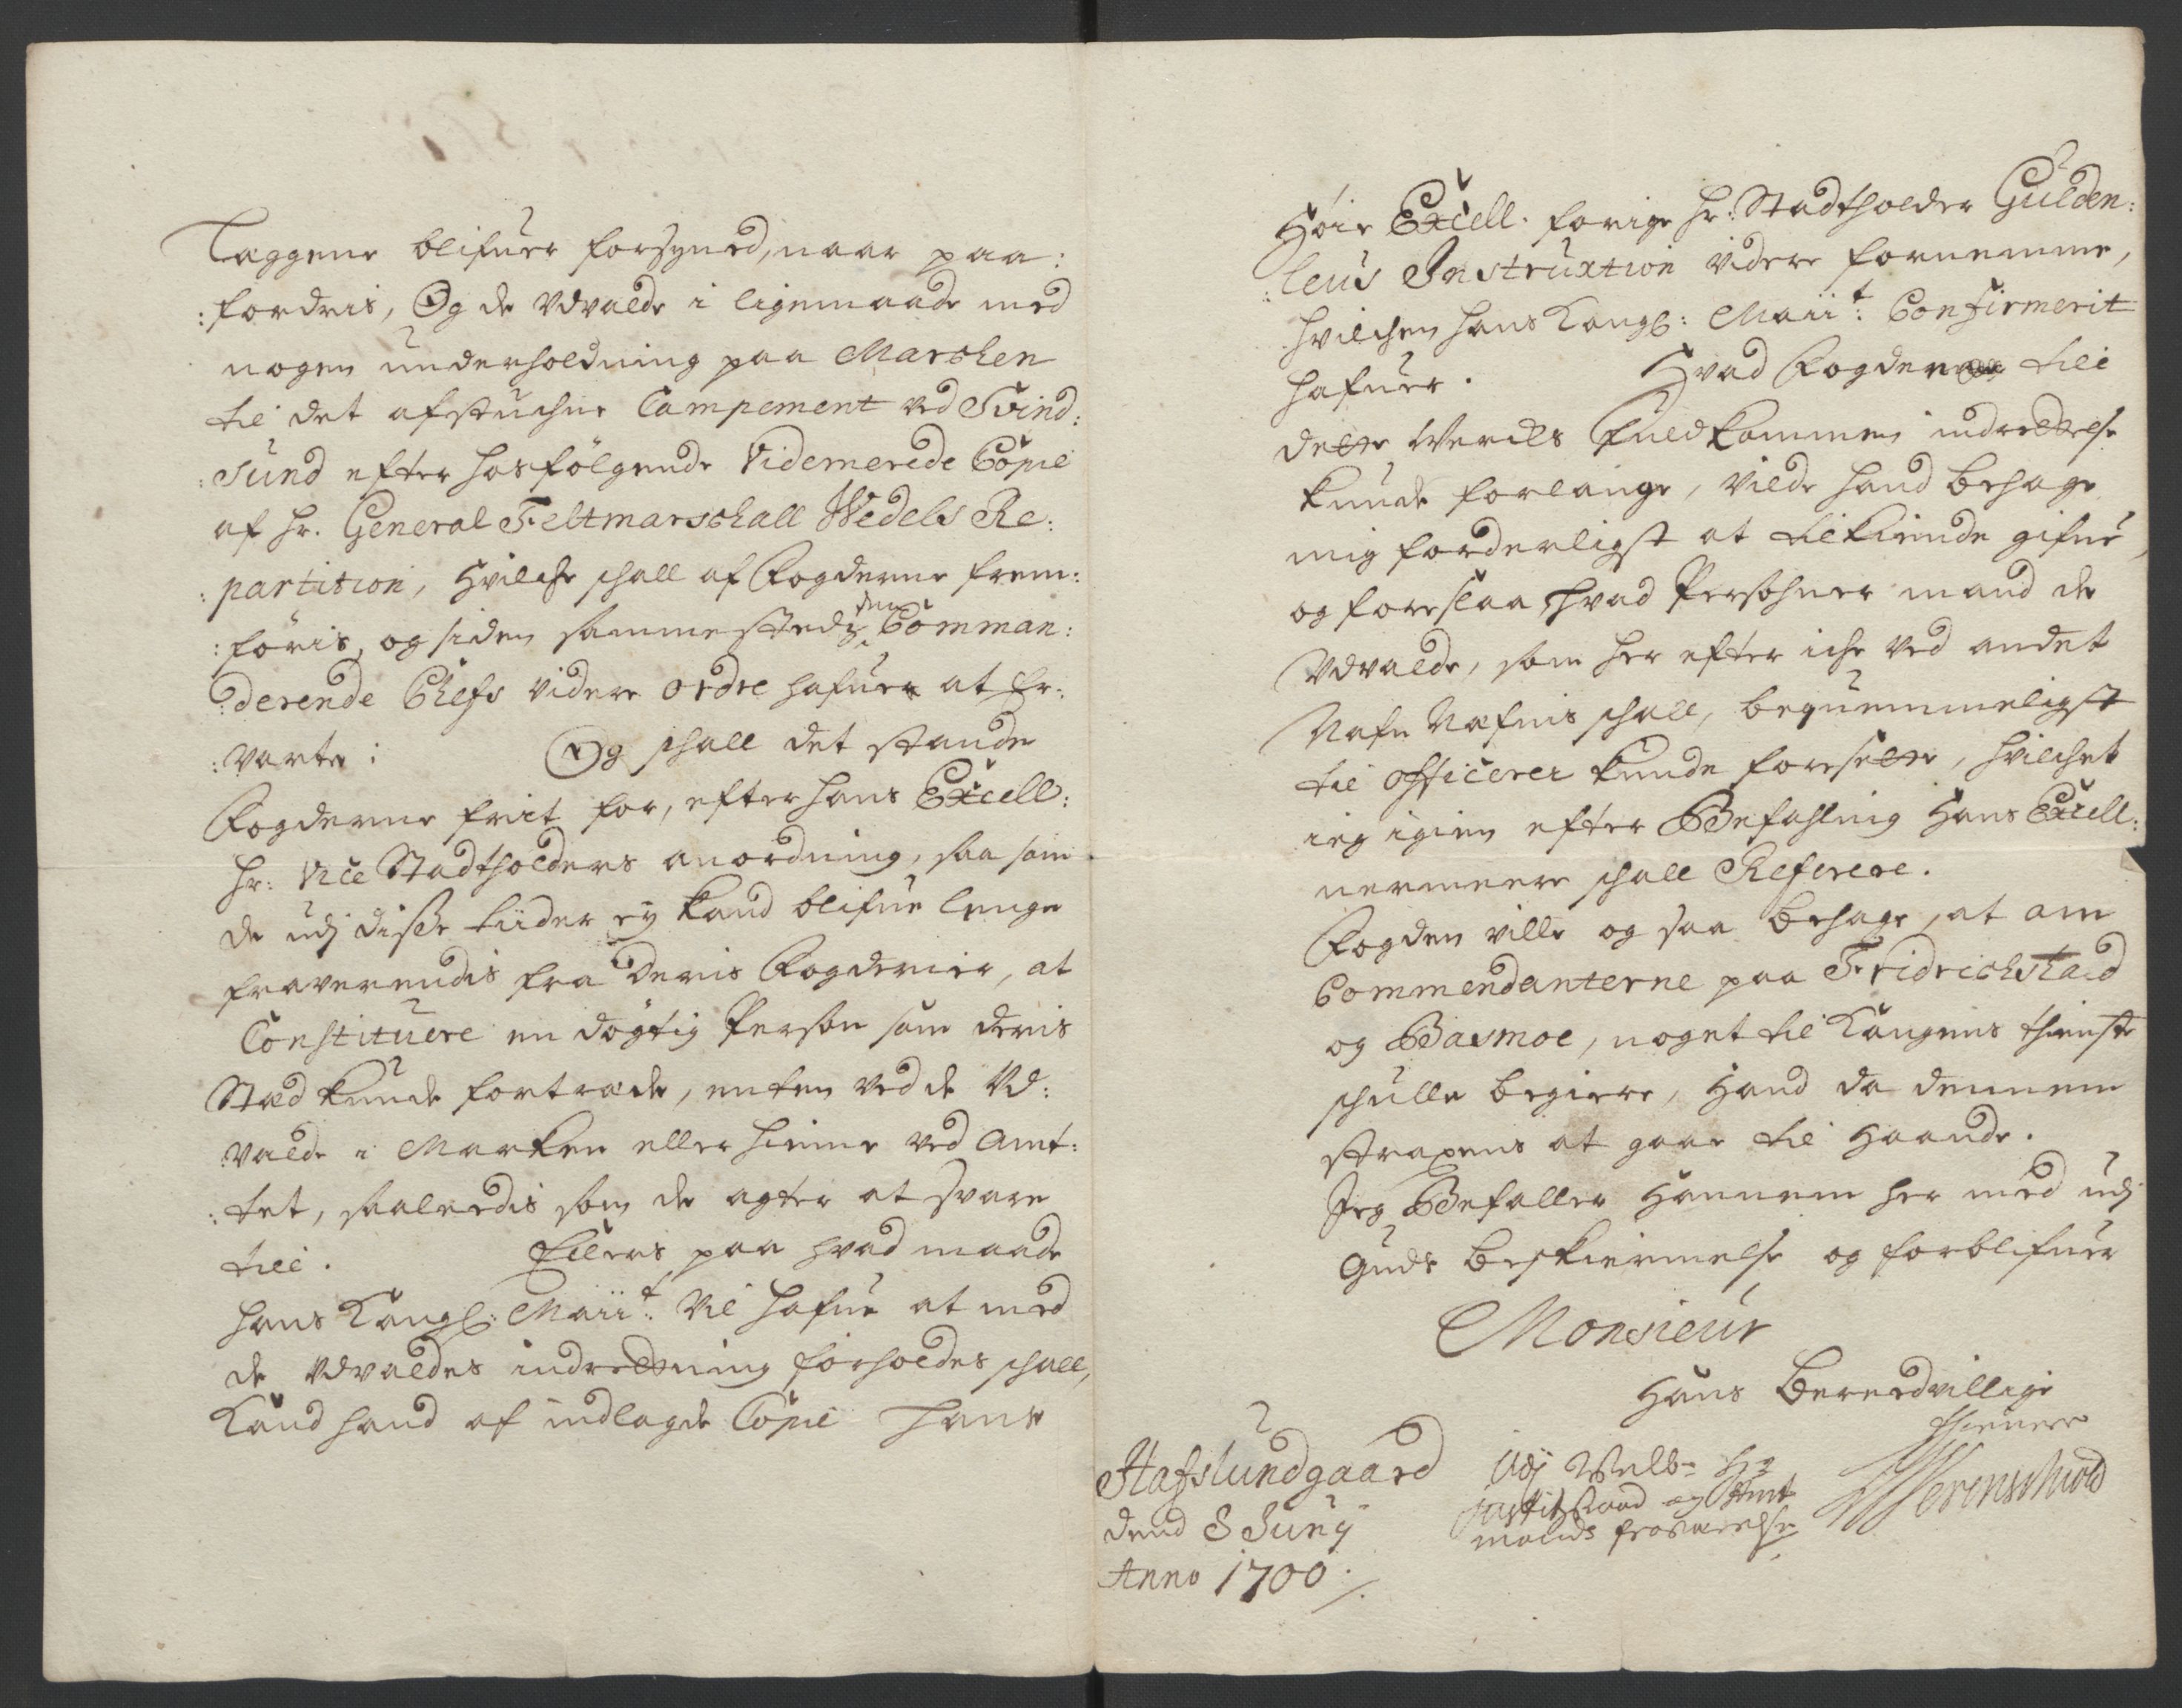 Laggene blifuer forsyned, naar paa:
:fordris, Og de Udvalde i ligemaade med
nogen underholdning paa Marchen
til det afstuchne Campement ved Svind:
:Sund efter hosfölgende Videmerede Copie
af hr. General Feltmarschall Wedels Re:
:partition, Hvilche schall af Fogderne frem:
:föris, og siden sammestedz den Comman:
:derende Chefs videre ordre hafuer at Er:
:varte: Og schall det stande
Fogderne frit for, efter hans Excell:
hr: Vice Stadtholders anordning, saa som
de udj disse tiider ey kand blifue lenge
fraverendis fra Deris Fogderier, at
Constituere en dögtig Person som deris
Stad kunde fortræde, enten ved de Ud:
:valde i Marken eller hiemme ved Amt:
:tet, saaleedis som de agter at svare
till. Ellers paa hvad maade
hans Kongl: Maiit: vil hafue at med
de Udvaldes indretning forholdes schall,
Kand hand af indlagde Copie hans
Höie Excell. forige hr: Stadtholder Gülden:
:leus Instruxtion videre fornemme,
hvilchen hans Kongl: Maiit: Confirmerit
hafuer. Hvad Fogden till
dette Werckes fuldkommen indrettelse
kunde forlange, vilde hand behage
mig forderligst at tilkiende gifue,
og foreslaa hvad Persohner mand de
Udvalde, som her efter iche ved andet
Nafn nafnis schall, bequemmeligst
til officerer kunde foresette, hvilchet
ieg igien efter Befahling Hans Excell:
nermeere schall Referere.
Fogden ville og saa behage, at om
Commendanterne paa Fridrichstad
og Basmoe, noget til Kongens thieniste
schulle begiere, Hand da dennem
strapens at gaae til Haande.
Jeg Befaller Hannem her med udj
Guds beskiermelse og forblifuer
Monsieur
Hans beredvillige
thienere
Hafslundgaard
dend 8 Junij
Anno 1700
Udj Welb: Hr
Justitzraad og Amt
mands fraværelse
Werenschiold